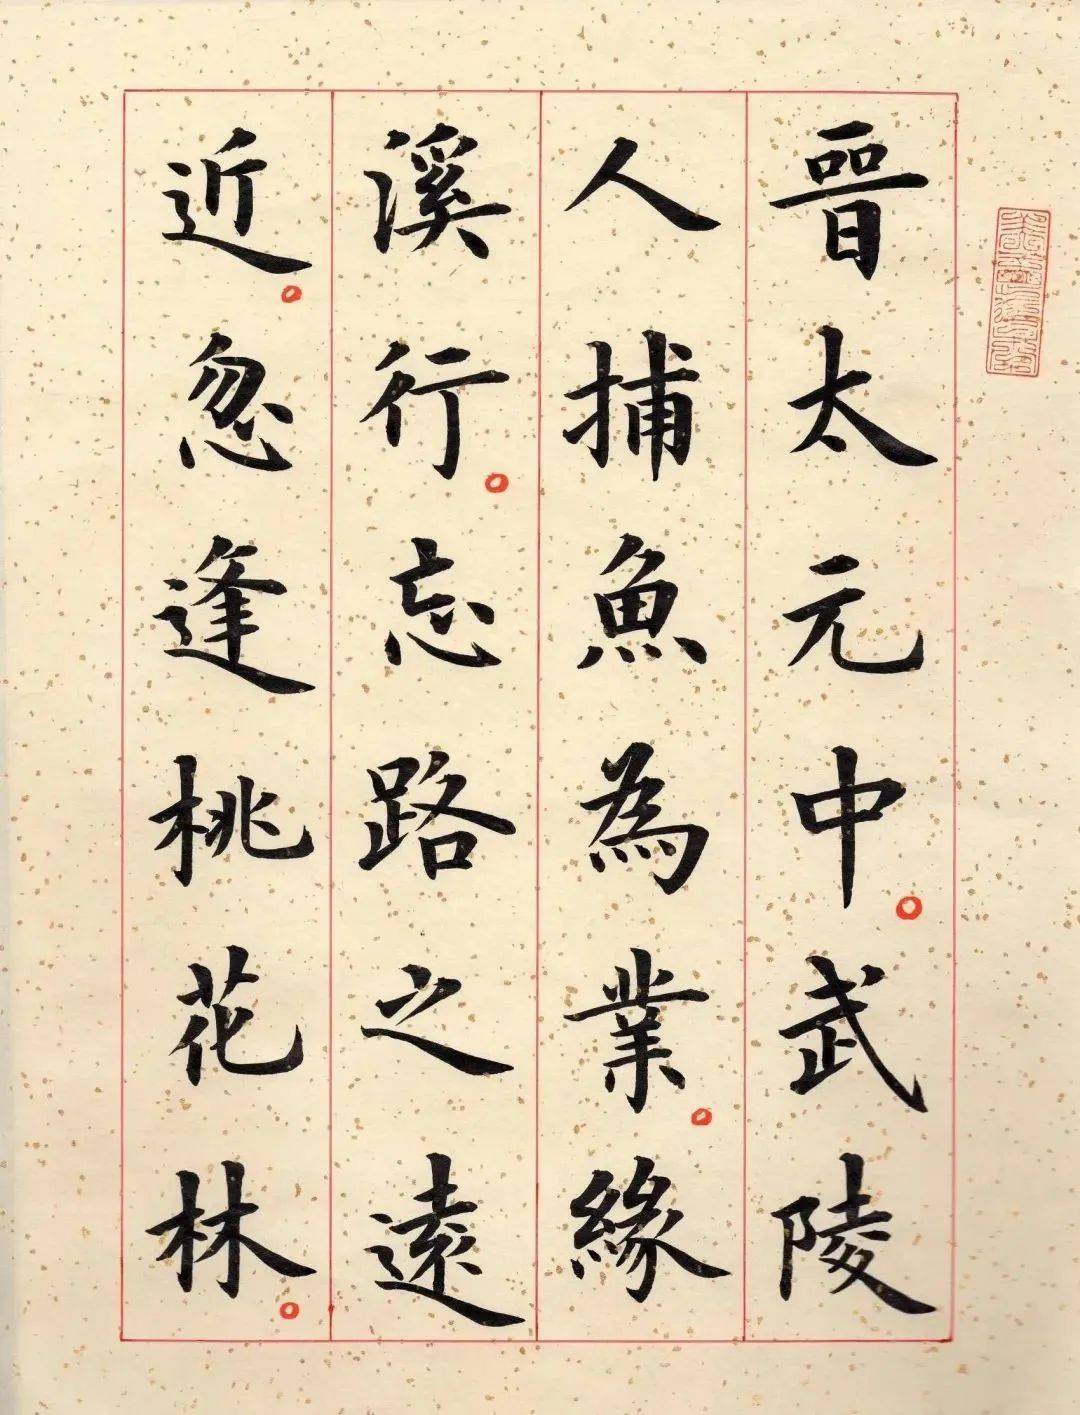 晉太元中。武陵
人捕魚為業。緣
溪行。忘路之遠
近。忽逢桃花林。